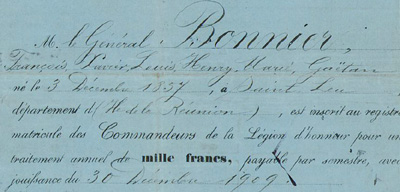 M. le Général Bonnier,
François Xavier, Louis, Henry, Marie, Gaëtan
né le 3 Décembre 1857, à Saint Leu,
département d (Ile de la Réunion), est inscrit au registre
matricule des Commandeurs de la Légion d'honneur pour un
traitement annuel de mille francs, payable par semestre, avec
jouissance du 30 Décembre 1909